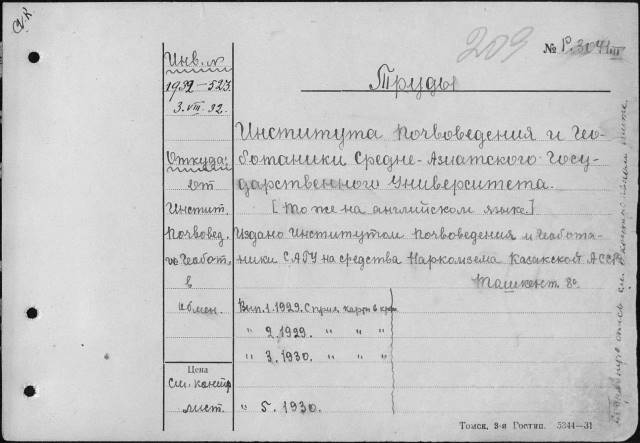 209
№ Р.3041 III
Труды
Инв. №
1932—523
3. VIII. 32.
Откуда:
от
Инстит.
Почвовед.
и Геобот.
в
обмен.
Цена
См. контр.
лист.
Института Почвоведения и Гео-
ботаники Средне-Азиатского Госу-
дарственного Университета.
[То же на английском языке.]
Издано Институтом Почвоведения и Геобота-
ники САГУ на средства Наркомзема Казакской АССР
Ташкент. 8о.
Вып. 1. 1929. С прил. карты в красках
" 2. 1929. " " "
" 3. 1930. " " "
" 5. 1930.
Томск, 3-я Гостип. 5344—31